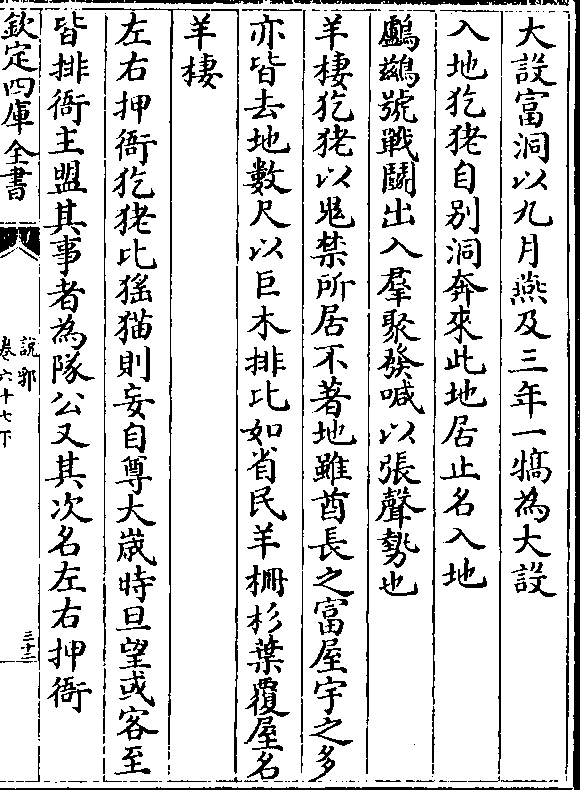 大設富洞以九月燕及三年一犒為大設
入地犵狫自别洞奔來此地居止名入地
鸕鷀號戰鬭出入羣聚發喊以張聲勢也
羊棲犵狫以鬼禁所居不著地雖酋長之富屋宇之多
亦皆去地數尺以巨木排比如省民羊柵杉葉覆屋名
羊棲
左右押衙犵狫比猺猫則妄自尊大歲時旦望或客至
皆排衙主盟其事者為隊公又其次名左右押衙
欽定四庫全書
説郛
卷六十七下
三十三